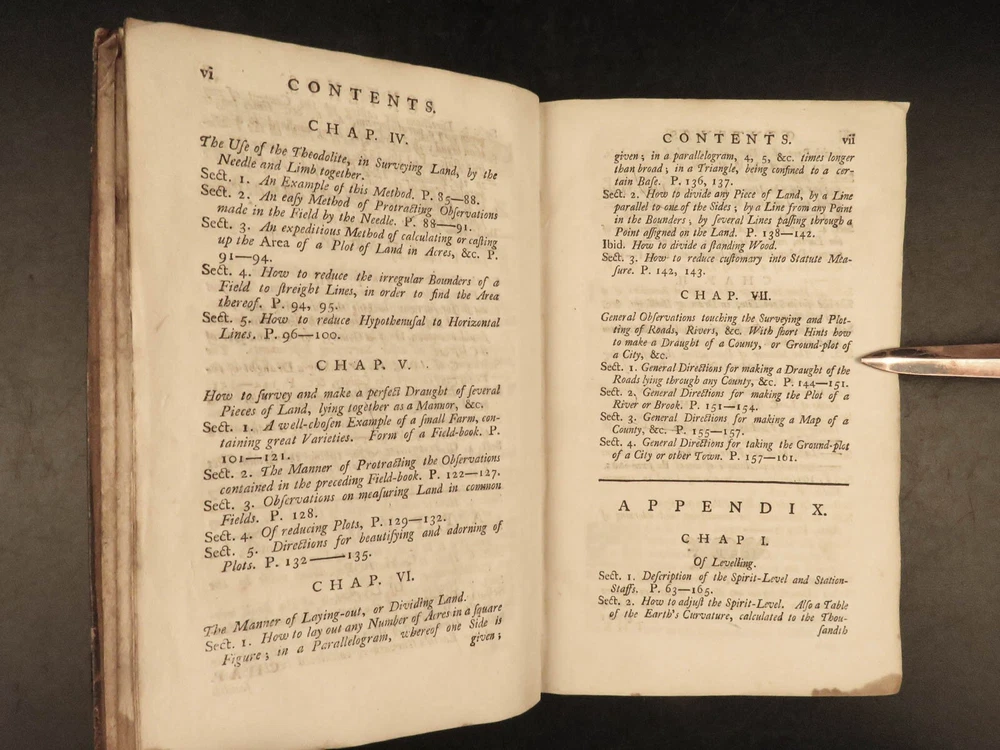 vi
CONTENTS.
CHAP. IV.
The Uſe of the Theodolite, in Surveying Land, by the
Needle and Limb together.
Sect. 1. An Example of this Method. P. 85—88.
Sect. 2. An eaſy Method of Protracting Obſervations
made in the Field by the Needle. P. 88—91.
Sect. 3. An expeditious Method of calculating or caſting
up the Area of a Plot of Land in Acres, &c. P.
91—94.
Sect. 4. How to reduce the irregular Bounders of a
Field to ſtreight Lines, in order to find the Area
thereof. P. 94, 95.
Sect. 5. How to reduce Hypothenuſal to Horizontal
Lines. P. 96—100.
CHAP. V.
How to ſurvey and make a perfect Draught of ſeveral
Pieces of Land, lying together as a Mannor, &c.
Sect. 1. A well-choſen Example of a ſmall Farm, con-
taining great Varieties. Form of a Field-book. P.
101—121.
Sect. 2. The Manner of Protracting the Obſervations
contained in the preceding Field-book. P. 122—127.
Sect. 3. Obſervations on meaſuring Land in common
Fields. P. 128.
Sect. 4. Of reducing Plots, P. 129—132.
Sect. 5. Directions for beautifying and adorning of
Plots. P. 132—135.
CHAP. VI.
The Manner of Laying-out, or Dividing Land.
Sect. 1. How to lay out any Number of Acres in a ſquare
Figure; in a Parallelogram, whereof one Side is
given;
CONTENTS. vii
given; in a parallelogram, 4, 5, &c. times longer
than broad; in a Triangle, being confined to a cer-
tain Baſe. P. 136, 137.
Sect. 2. How to divide any Piece of Land, by a Line
parallel to one of the Sides; by a Line from any Point
in the Bounders; by ſeveral Lines paſſing through a
Point aſſigned on the Land. P. 138—142.
Ibid. How to divide a ſtanding Wood.
Sect. 3. How to reduce cuſtomary into Statute Mea-
ſure. P. 142, 143.
CHAP. VII.
General Obſervations touching the Surveying and Plot-
ting of Roads, Rivers, &c. With ſhort Hints how
to make a Draught of a County, or Ground-plot of
a City, &c.
Sect. 1. General Directions for making a Draught of the
Roads lying through any County, &c. P. 144—151.
Sect. 2. General Directions for making the Plot of a
River or Brook. P. 151—154.
Sect. 3. General Directions for making a Map of a
County, &c. P. 155—157.
Sect. 4. General Directions for taking the Ground-plot
of a City or other Town. P. 157—161.
APPENDIX.
CHAP I.
Of Levelling.
Sect. 1. Deſcription of the Spirit-Level and Station-
Staffs. P. 63—165.
Sect. 2. How to adjuſt the Spirit-Level. Alſo a Table
of the Earth's Curvature, calculated to the Thou-
ſandth